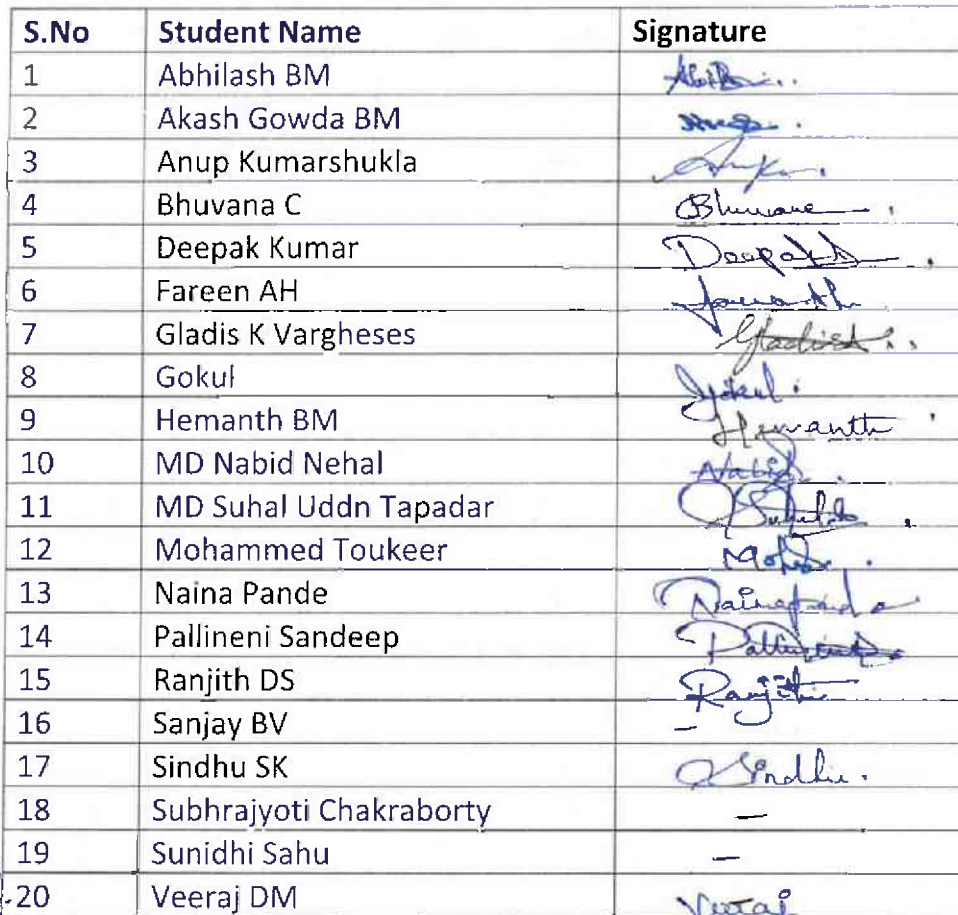 S.No Student Name Signature
1 Abhilash BM
2 Akash Gowda BM
3 Anup Kumarshukla
4 Bhuvana C Bhuvana
5 Deepak Kumar Deepak
6 Fareen AH
7 Gladis K Vargheses
8 Gokul Gokul
9 Hemanth BM Hemanth
10 MD Nabid Nehal Nabid
11 MD Suhal Uddn Tapadar
12 Mohammed Toukeer Mohd
13 Naina Pande
14 Pallineni Sandeep
15 Ranjith DS Ranjith
16 Sanjay BV –
17 Sindhu SK Sindhu
18 Subhrajyoti Chakraborty –
19 Sunidhi Sahu –
20 Veeraj DM Veeraj